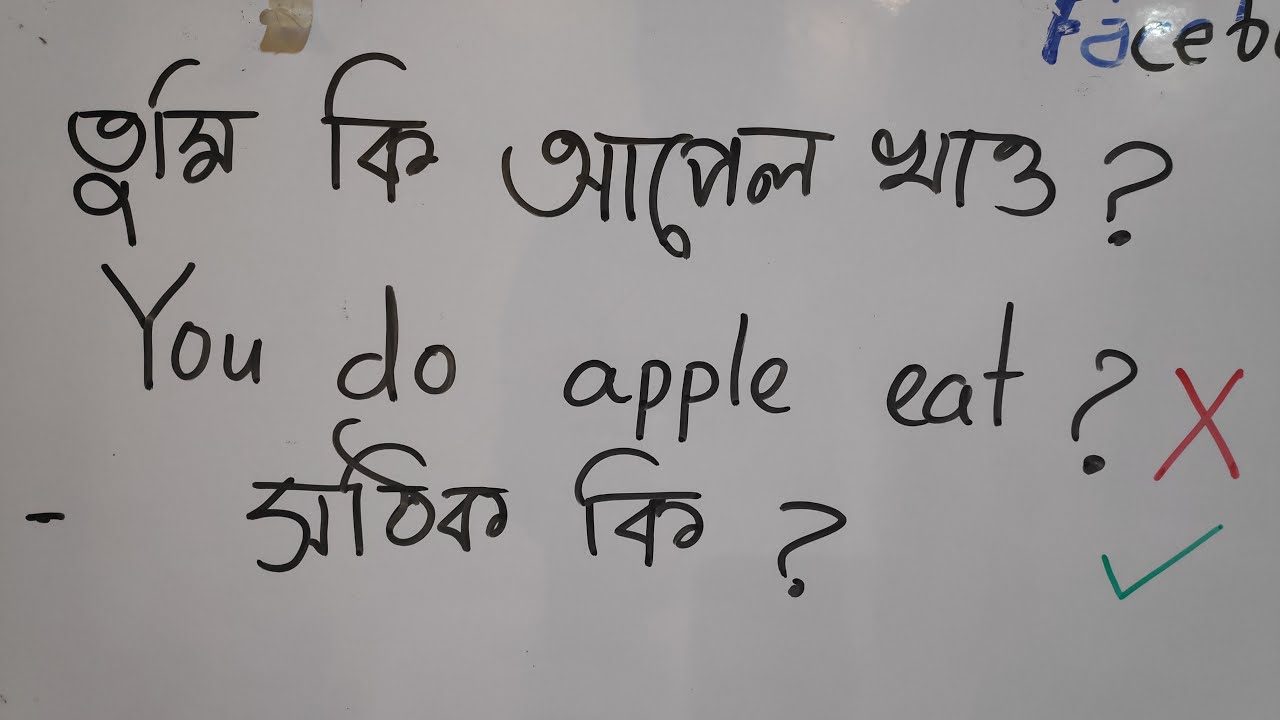 Faceb
তুমি কি আপেল খাও ?
You do apple eat ?
- সঠিক কি ?